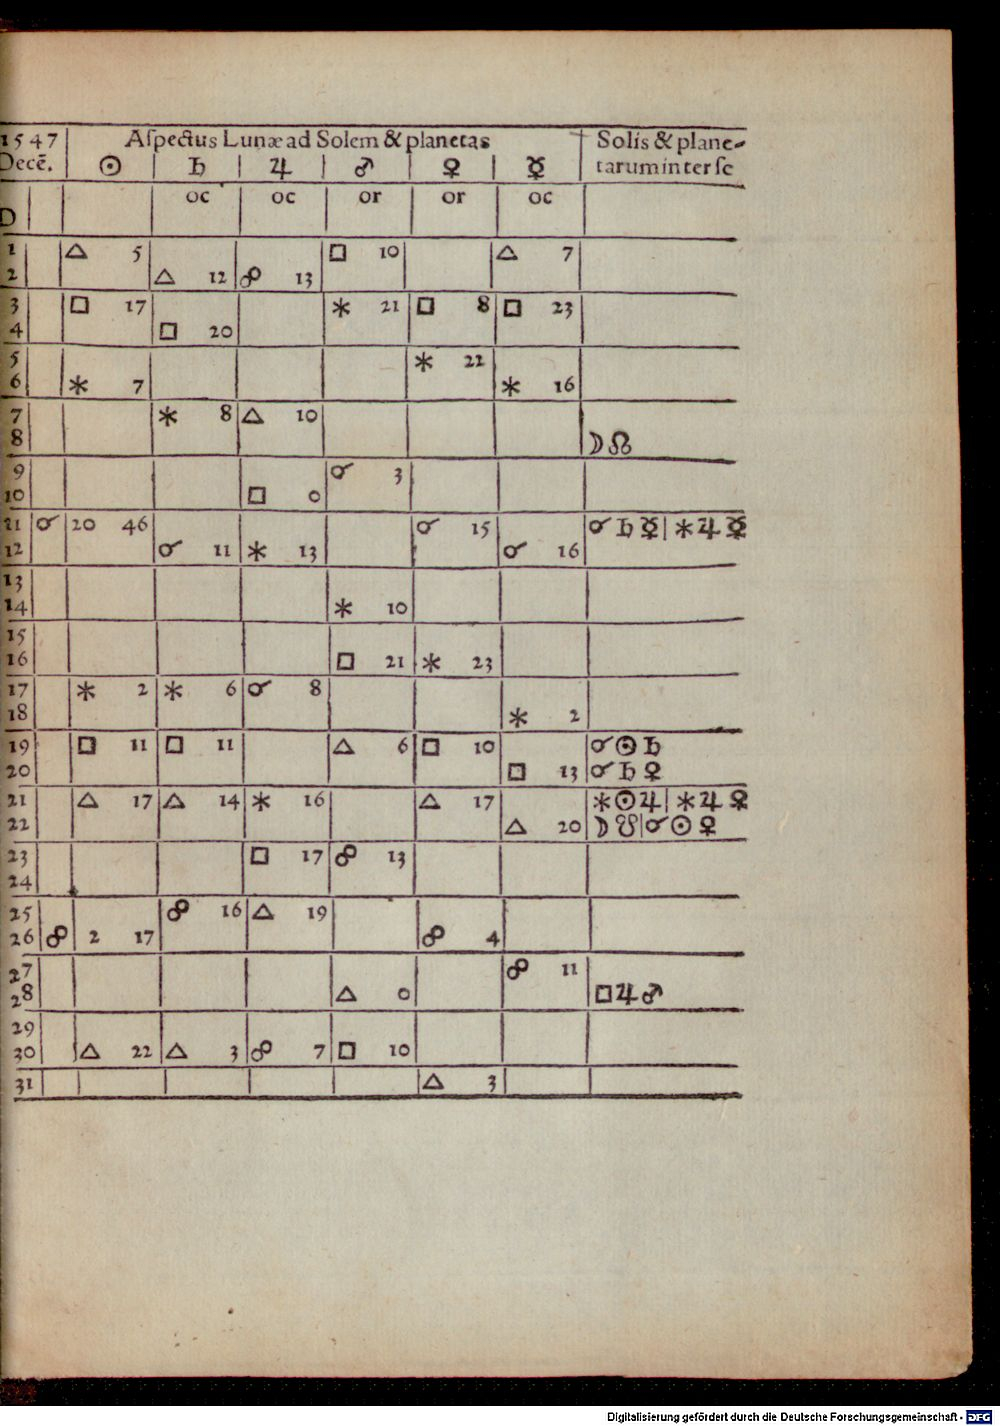 1547 Aſpectus Lunæ ad Solem & planetas Solis & plane-
Decē. ☉ ♄ ♃ ♂ ♀ ☿ tarum inter ſe
D oc oc or or oc
1 △ 5 □ 10 △ 7
2 △ 12 ☍ 13
3 □ 17 ⚹ 21 □ 8 □ 23
4 □ 20
5 ⚹ 22
6 ⚹ 7 ⚹ 16
7 ⚹ 8 △ 10
8 ☽ ☊
9 ☌ 3
10 □ 0
21 ☌ 20 46 ☌ 15 ☌ ♄ ☿ | ⚹ ♃ ☿
12 ☌ 11 ⚹ 13 ☌ 16
13
14 ⚹ 10
15
16 □ 21 ⚹ 23
17 ⚹ 2 ⚹ 6 ☌ 8
18 ⚹ 2
19 □ 11 □ 11 △ 6 □ 10 ☌ ☉ ♄
20 □ 13 ☌ ♄ ♀
21 △ 17 △ 14 ⚹ 16 △ 17 ⚹ ☉ ♃ | ⚹ ♃ ♀
22 △ 20 ☽ ☋ | ☌ ☉ ♀
23 □ 17 ☍ 13
24
25 ☍ 16 △ 19
26 ☍ 2 17 ☍ 4
27 ☍ 11
28 △ 0 □ ♃ ♂
29
30 △ 22 △ 3 ☍ 7 □ 10
31 △ 3
Digitalisierung gefördert durch die Deutsche Forschungsgemeinschaft - DFG